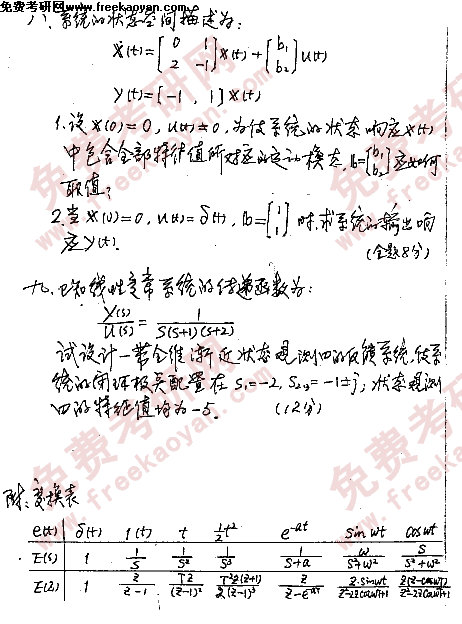 免费考研网www.freekaoyan.com
八、系统的状态空间描述为:
ẋ(t)=[0 1; 2 -1]x(t)+[b₁; b₂]u(t)
y(t)=[-1, 1]x(t)
1.设x(0)=0, u(t)≠0, 为使系统的状态响应x(t)
中包含全部特征值所对应的运动模态, b=[b₁; b₂]应如何
取值?
2.当x(0)=0, u(t)=δ(t), b=[1; 1]时,求系统的输出响
应y(t).
(全题8分)
九、已知线性定常系统的传递函数为:
Y(s)/U(s)=1/S(S+1)(S+2)
试设计一带全维渐近状态观测器的反馈系统,使系
统的闭环极点配置在S₁=-2, S₂,₃=-1±j; 状态观测
器的特征值均为-5. (12分)
附:变换表
e(t) δ(t) 1(t) t ½t² e^-at sin wt cos wt
E(s) 1 1/S 1/S² 1/S³ 1/(S+a) w/(S²+w²) S/(S²+w²)
E(Z) 1 Z/(Z-1) TZ/(Z-1)² T²Z(Z+1)/2(Z-1)³ Z/(Z-e^-aT) Z·sinwT/(Z²-2Zcoswt+1) Z(Z-coswT)/(Z²-2Zcoswt+1)
免费考研网
www.freekaoyan.com
免费考研网
www.freekaoyan.com